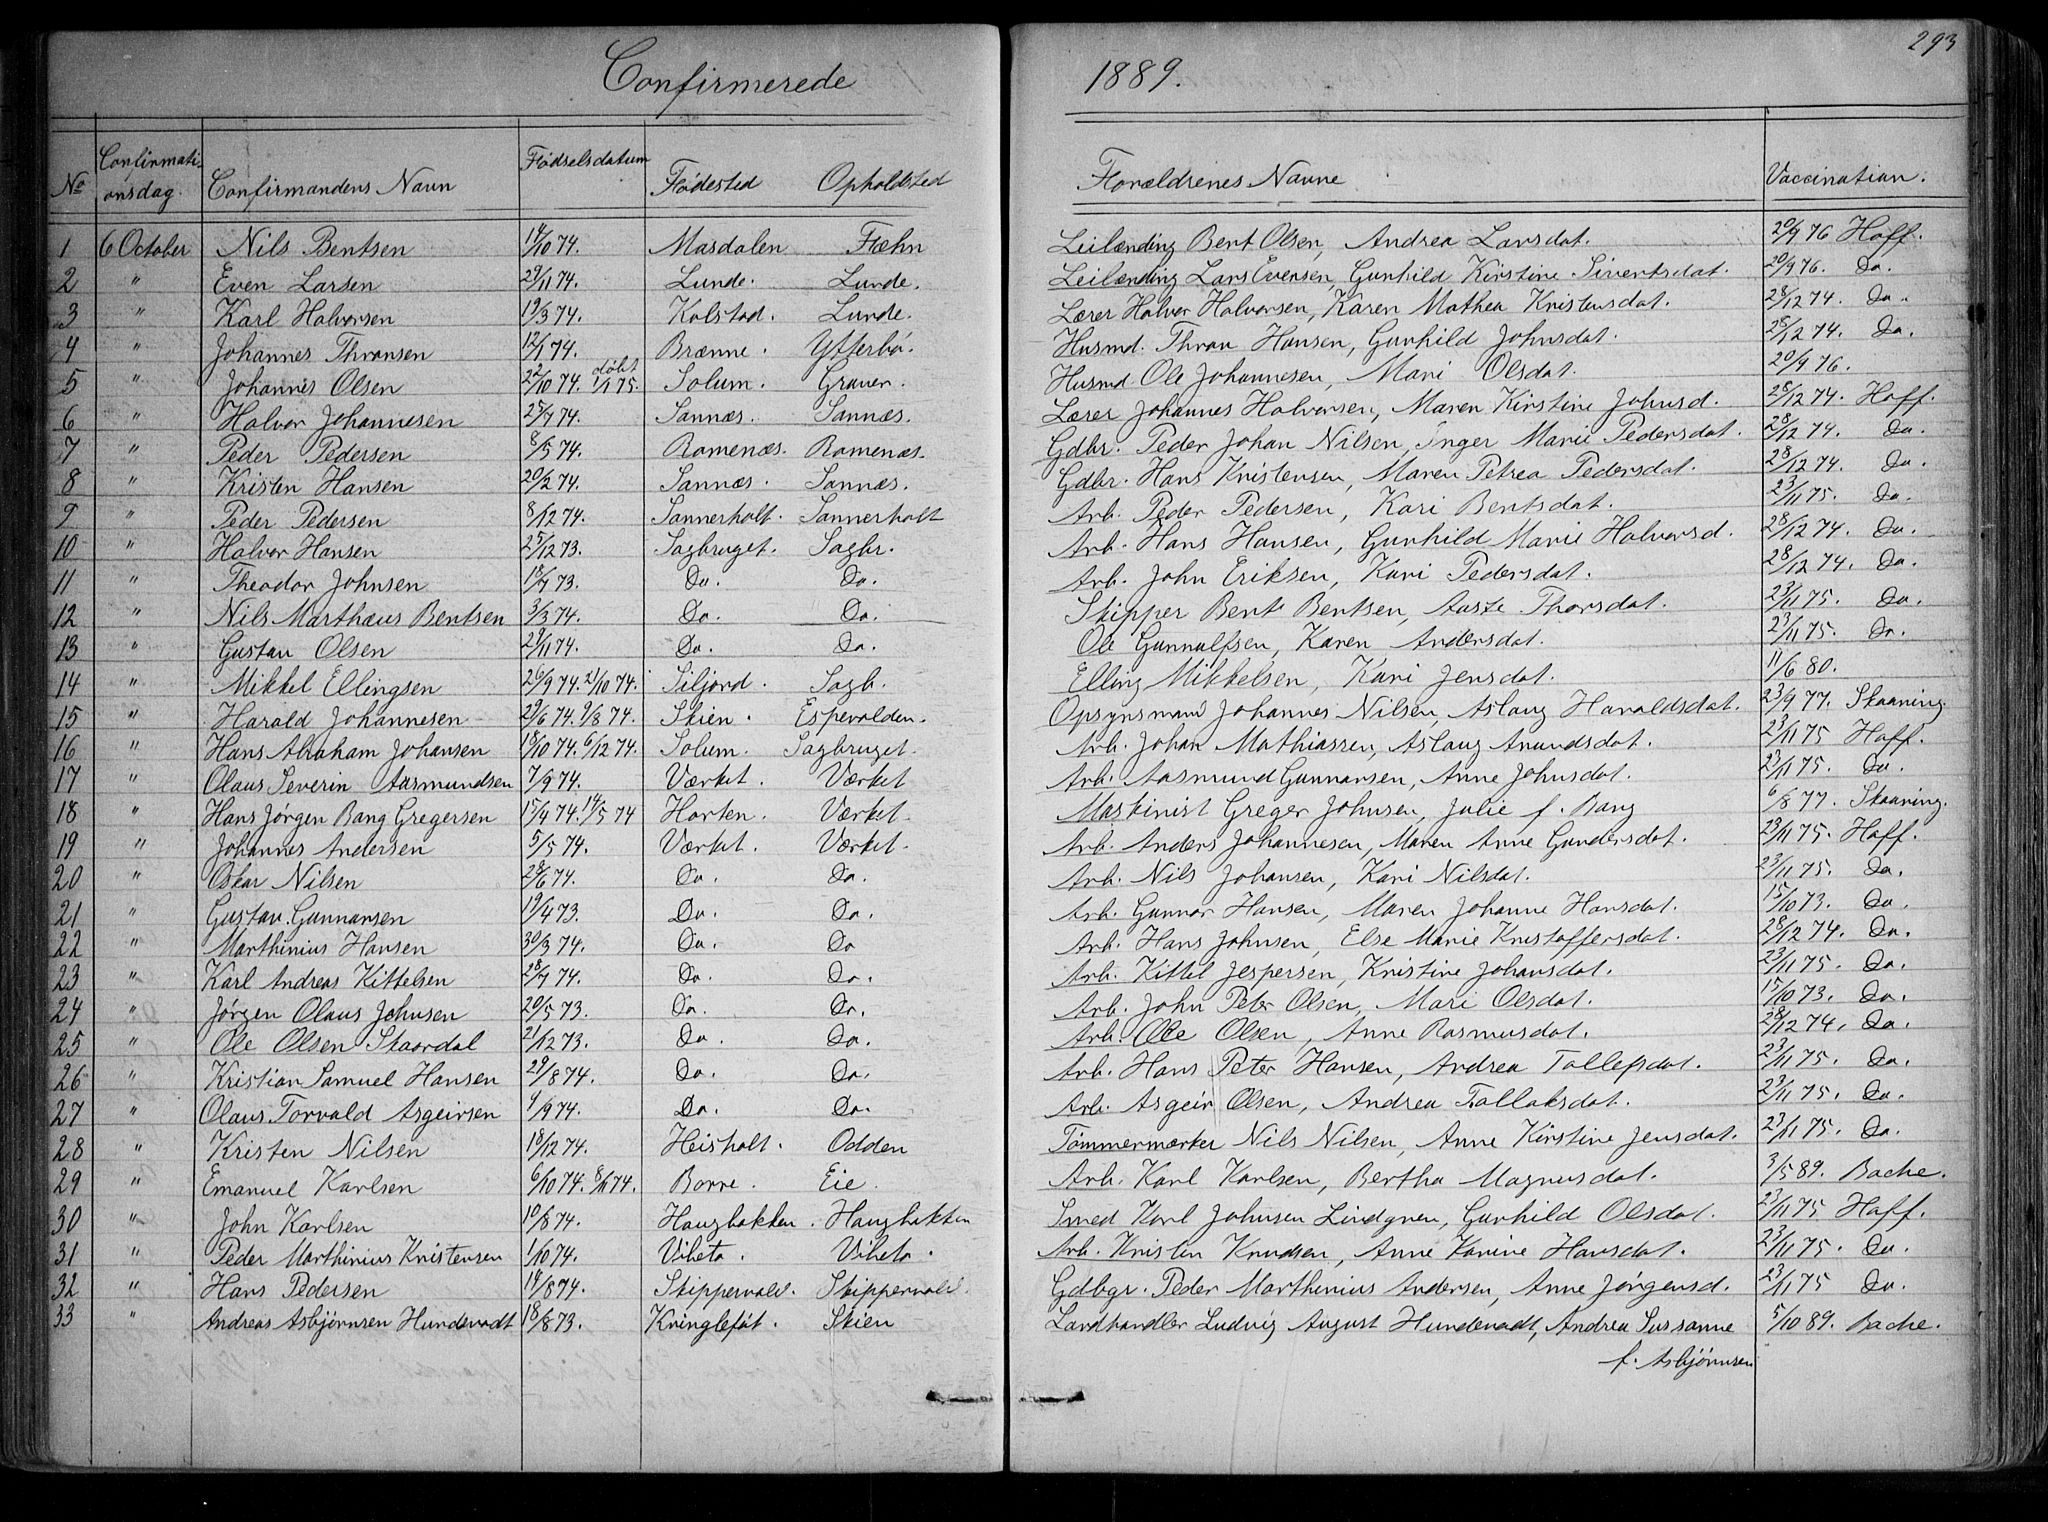 293
Confirmerede 1889.
No Confirmationsdag. Confirmandens Navn Fødselsdatum Fødested Opholdsted Forældrenes Navne Vaccination.
1 6 October Nils Bentsen 14/10 74. Masdalen Fæhn Leilænding Bent Olsen, Andrea Larsdat. 20/9 76 Hoff.
2 " Even Larsen 29/11 74. Lunde. Lunde. Leilænding Lars Evensen, Gunhild Kirstine Sivertsdat. 20/9 76. Do.
3 " Karl Halvorsen 19/3 74. Kolstad. Lunde. Lærer Halvor Halvorsen, Karen Mathea Kristensdat. 28/12 74. Do.
4 " Johannes Thronsen 12/1 74. Brænne. Ytterbø. Husmd. Thron Hansen, Gunhild Johnsdat. 28/12 74. Do.
5 " Johannes Olsen 22/10 74. døbt 1/1 75. Solum. Graver. Husmd. Ole Johannesen, Mari Olsdat. 20/9 76.
6 " Halvor Johannesen 25/7 74. Sannæs. Sannæs. Lærer Johannes Halvorsen, Maren Kirstine Johnsd. 28/12 74. Hoff.
7 " Peder Pedersen 8/5 74. Romenæs. Romenæs. Gdbr. Peder Johan Nilsen, Inger Marie Pedersdat. 28/12 74. Do.
8 " Kristen Hansen 20/2 74. Sannæs. Sannæs. Gdbr. Hans Kristensen, Maren Petrea Pedersdat. 28/12 74. Do.
9 " Peder Pedersen 8/12 74. Sannerholt. Sannerholt Arb. Peder Pedersen, Kari Bentsdat. 23/11 75. Do.
10 " Halvor Hansen 25/12 73. Sagbruget. Sagbr. Arb. Hans Hansen, Gunhild Marie Halvorsd. 28/12 74. Do.
11 " Theodor Johnsen 18/9 73. Do. Do. Arb. John Eriksen, Kari Pedersdat. 28/12 74. Do.
12 " Nils Marthæus Bentsen 3/3 74. Do. Do. Skipper Bent Bentsen, Aaste Thorsdat. 23/11 75. Do.
13 " Gustav Olsen 29/11 74. Do. Do. Ole Gunnulfsen, Karen Andersdat. 23/11 75. Do.
14 " Mikkel Ellingsen 26/9 74. 21/10 74. Siljord. Sagb. Elling Mikkelsen, Kari Jensdat. 11/6 80.
15 " Harald Johannesen 29/6 74. 9/8 74. Skien. Espevolden. Opsynsmand Johannes Nilsen, Aslaug Haraldsdat. 23/9 77. Skaaning.
16 " Hans Abraham Johansen 18/10 74. 6/12 74. Solum. Sagbruget. Arb. Johan Mathiassen, Aslaug Anundsdat. 23/11 75 Hoff.
17 " Olaus Severin Aasmundsen 7/9 74. Værket. Værket Arb. Aasmund Gunnarsen, Anne Johnsdat. 23/11 75. Do.
18 " Hans Jørgen Bang Gregersen 17/4 74. 14/5 74 Horten. Værket. Maskinist Greger Johnsen, Julie f. Bang 6/8 77. Skaaning.
19 " Johannes Andersen 5/5 74. Værket. Værket. Arb. Anders Johannesen, Maren Anne Gundersdat. 23/11 75. Hoff.
20 " Oskar Nilsen 28/6 74. Do. Do. Arb. Nils Johansen, Kari Nilsdat. 23/11 75. Do.
21 " Gustav Gunnarsen 19/4 73. Do. Do. Arb. Gunnar Hansen, Maren Johanne Hansdat. 15/10 73. Do.
22 " Marthinius Hansen 30/3 74. Do. Do Arb. Hans Johnsen, Else Marie Kristoffersdat. 28/12 74. Do.
23 " Karl Andreas Kittelsen 28/7 74. Do. Do. Arb. Kittel Jespersen, Kristine Johansdat. 23/11 75. Do.
24 " Jørgen Olaus Johnsen 20/5 73. Do. Do. Arb. John Peter Olsen, Mari Olsdat. 15/10 73. Do.
25 " Ole Olsen Skaardal 21/12 73. Do. Do. Arb. Ole Olsen, Anne Rasmusdat. 28/12 74. Do.
26 " Kristian Samuel Hansen 29/8 74. Do. Do. Arb. Hans Peter Hansen, Andrea Tollefsdat. 23/11 75. Do.
27 " Olaus Torvald Asgeirsen 4/9 74. Do. Do. Arb. Asgeir Olsen, Andrea Tollaksdat. 23/11 75. Do.
28 " Kristen Nilsen 18/12 74. Heisholt. Odden Tømmermærker Nils Nilsen, Anne Kirstine Jensdat. 23/11 75. Do.
29 " Emanuel Karlsen 6/10 74. 8/11 74. Borre. Eie. Arb. Karl Karlsen, Bertha Magnusdat. 3/5 89. Bache.
30 " John Karlsen 10/8 74. Haugbakken. Haugbakken Smed Karl Johnsen Lindgren, Gunhild Olsdat. 23/11 75 Hoff.
31 " Peder Marthinius Kristensen 1/10 74. Viheto. Viheto. Arb. Kristen Knudsen, Anne Karine Hansdat. 23/11 75. Do.
32 " Hans Pedersen 14/8 74. Skippervold. Skippervold. Gdbgr. Peder Marthinius Andersen, Anne Jørgensd. 23/11 75 Do.
33 " Andreas Asbjørnsen Hundevadt 18/8 73. Kringlefåt. Skien Landhandler Ludvig August Hundevadt, Andrea Sussanne f. Asbjørnsen 5/10 89. Bache.